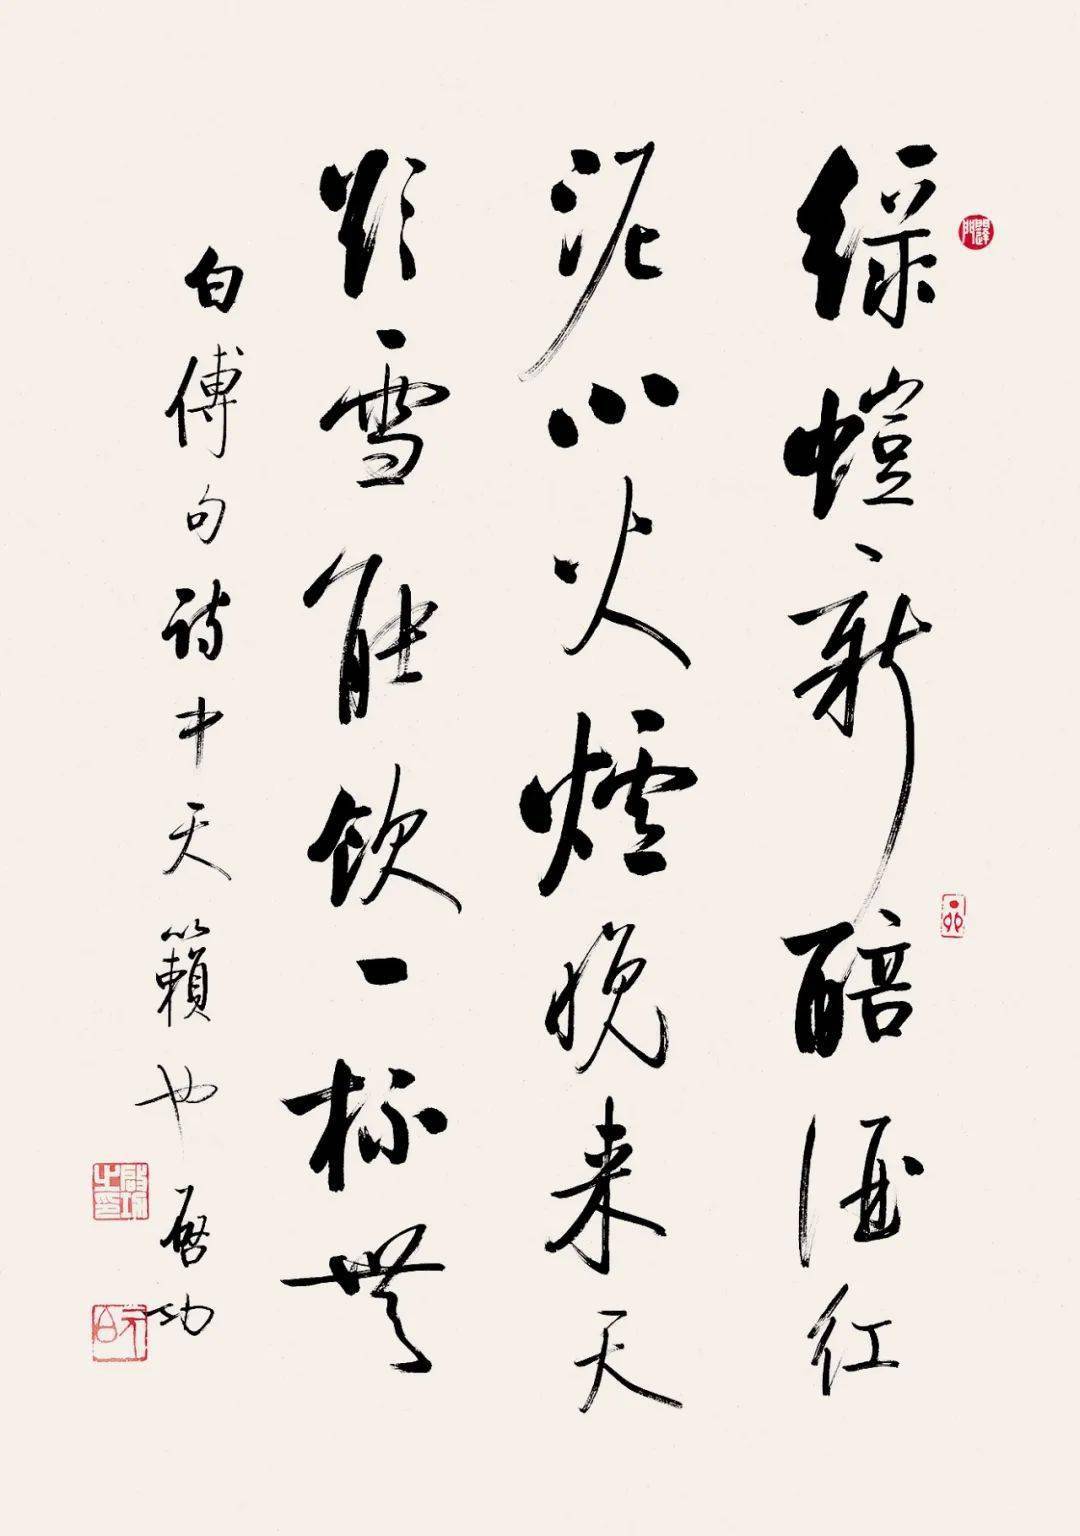 綠螘新醅酒紅
泥小火爐晚来天
欲雪能飲一杯無
白傅句詩中天籟也 啓功
啓功之印
元白